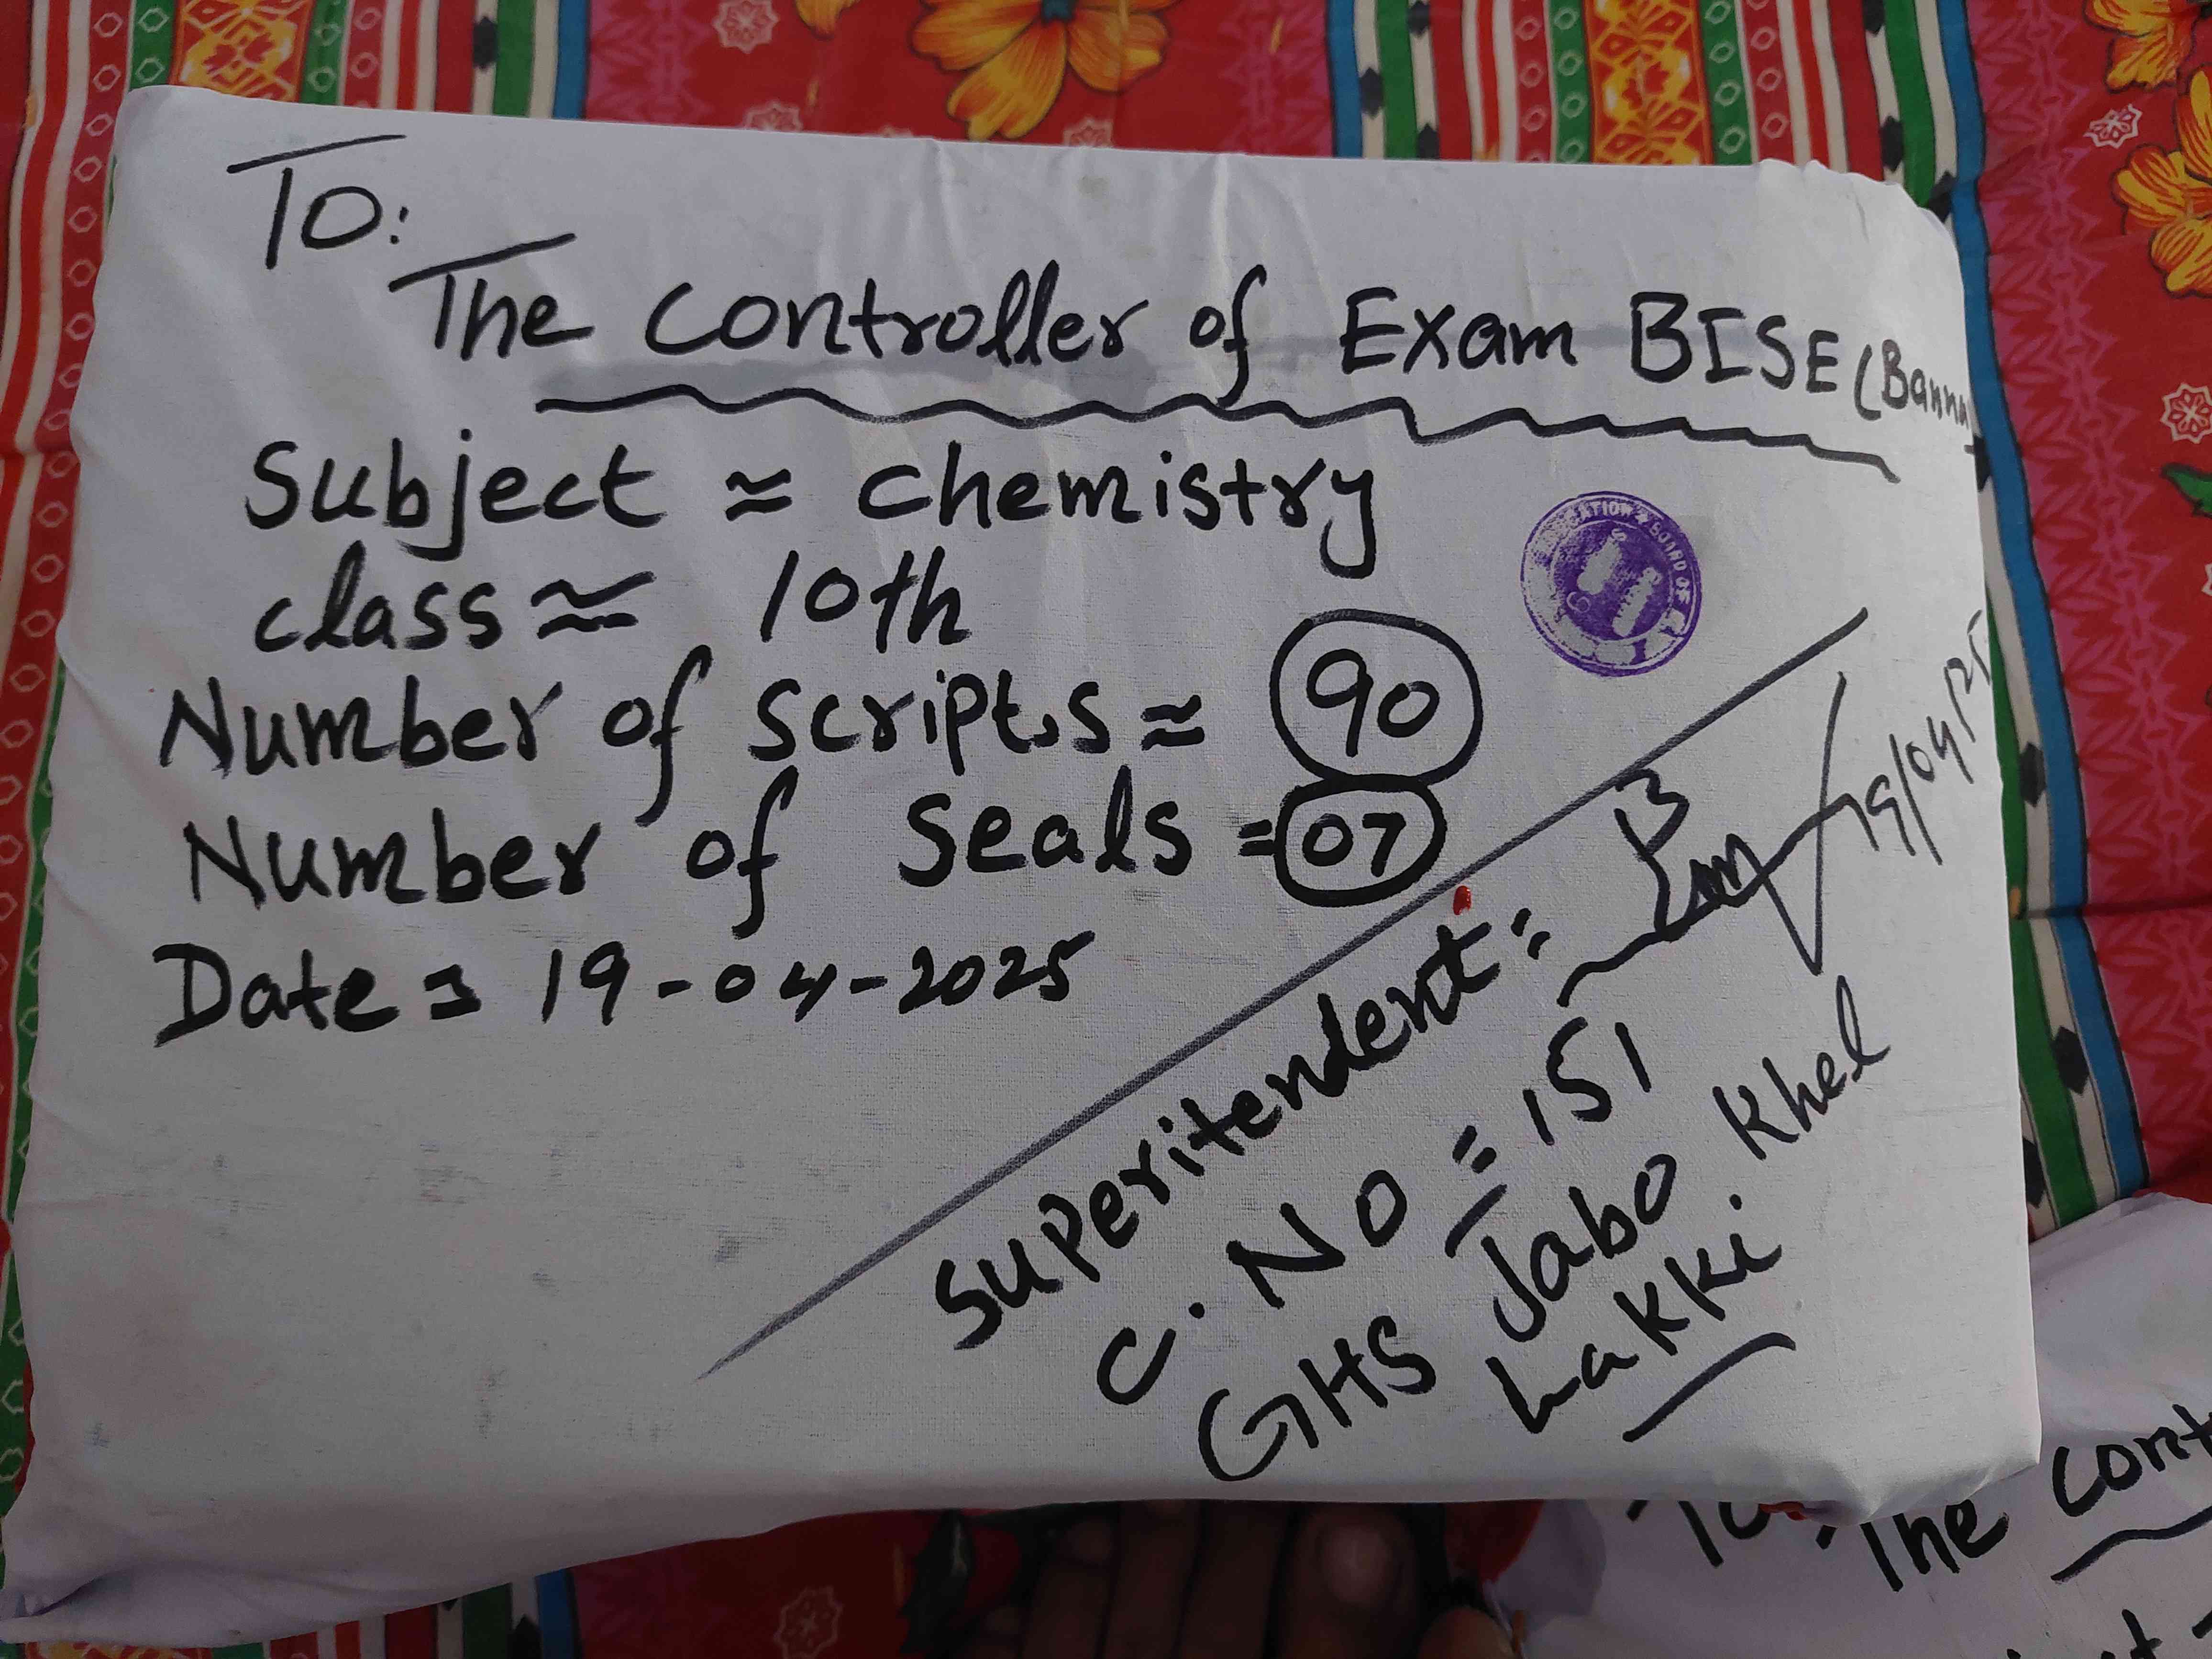 To:
The Controller of Exam BISE (Bannu)
Subject ≈ chemistry
class ≈ 10th
Number of scripts ≈ 90
Number of seals = 07
Date = 19-04-2025
Superitendent =
19/04/25
C. No = 151
GHS Jabo Khel
Lakki
To:
The cont